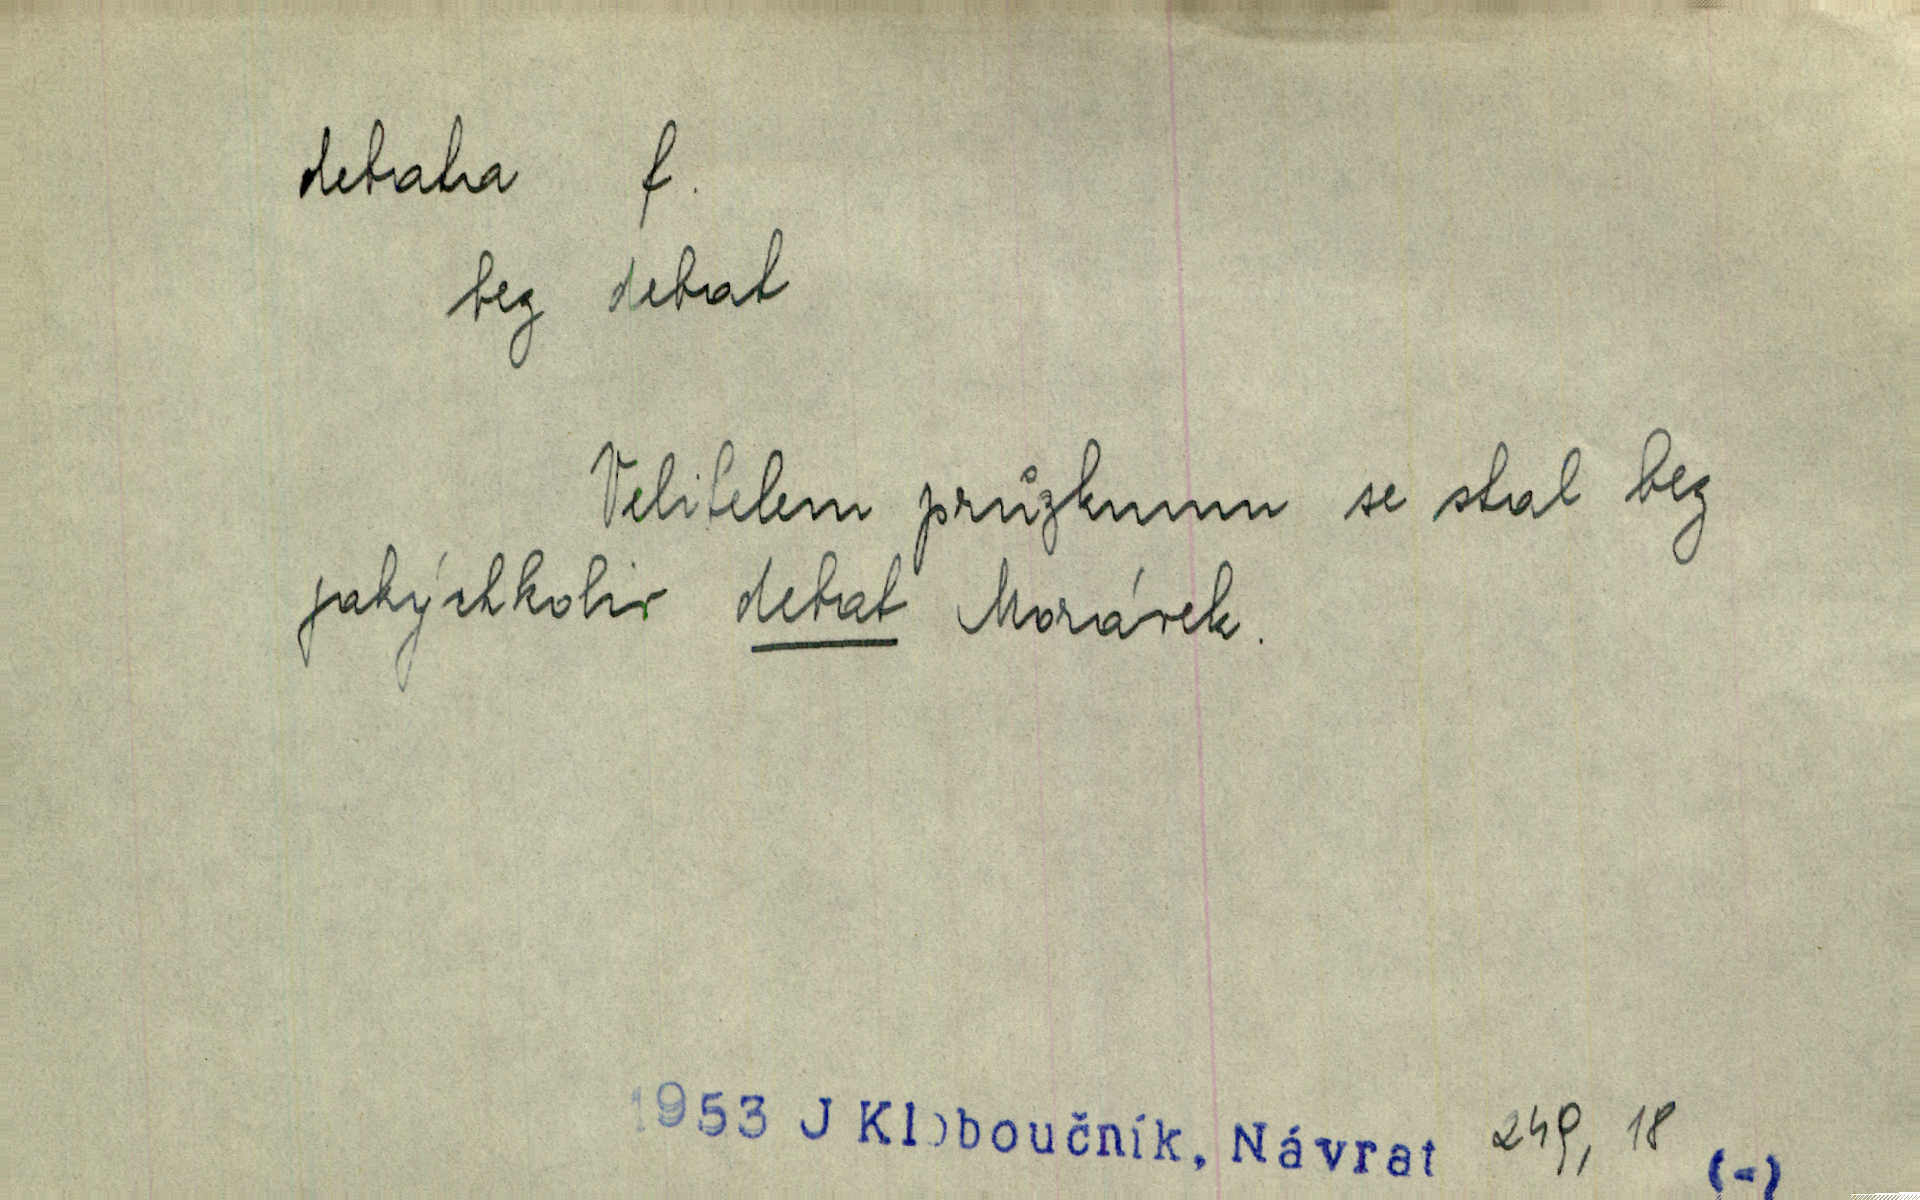 debata f.
bez debat
Velitelem průzkumu se stal bez
jakýchkoliv debat Morávek.
1953 J Kloboučník, Návrat 249, 18 (-)